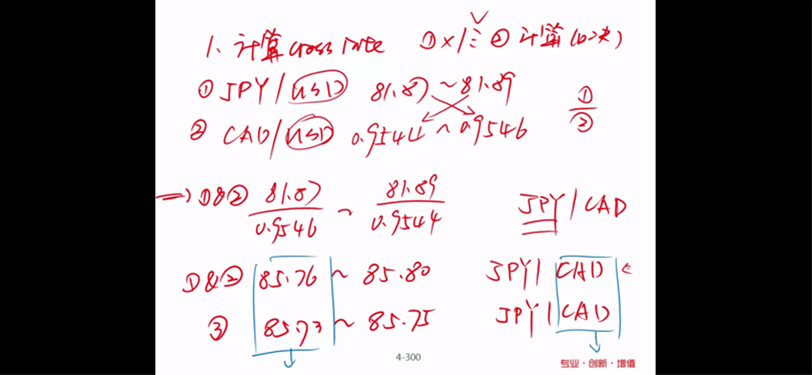 1. 计算 cross rate ① × / ÷ ② 计算(如决)
① JPY/USD 81.87 ~ 81.89 ①/②
② CAD/USD 0.9544 ~ 0.9546
⇒ ①&② 81.87/0.9546 ~ 81.89/0.9544 JPY/CAD
①&② 85.76 ~ 85.80 JPY/CAD ←
③ 85.73 ~ 85.75 JPY/CAD
4-300
专业·创新·增值